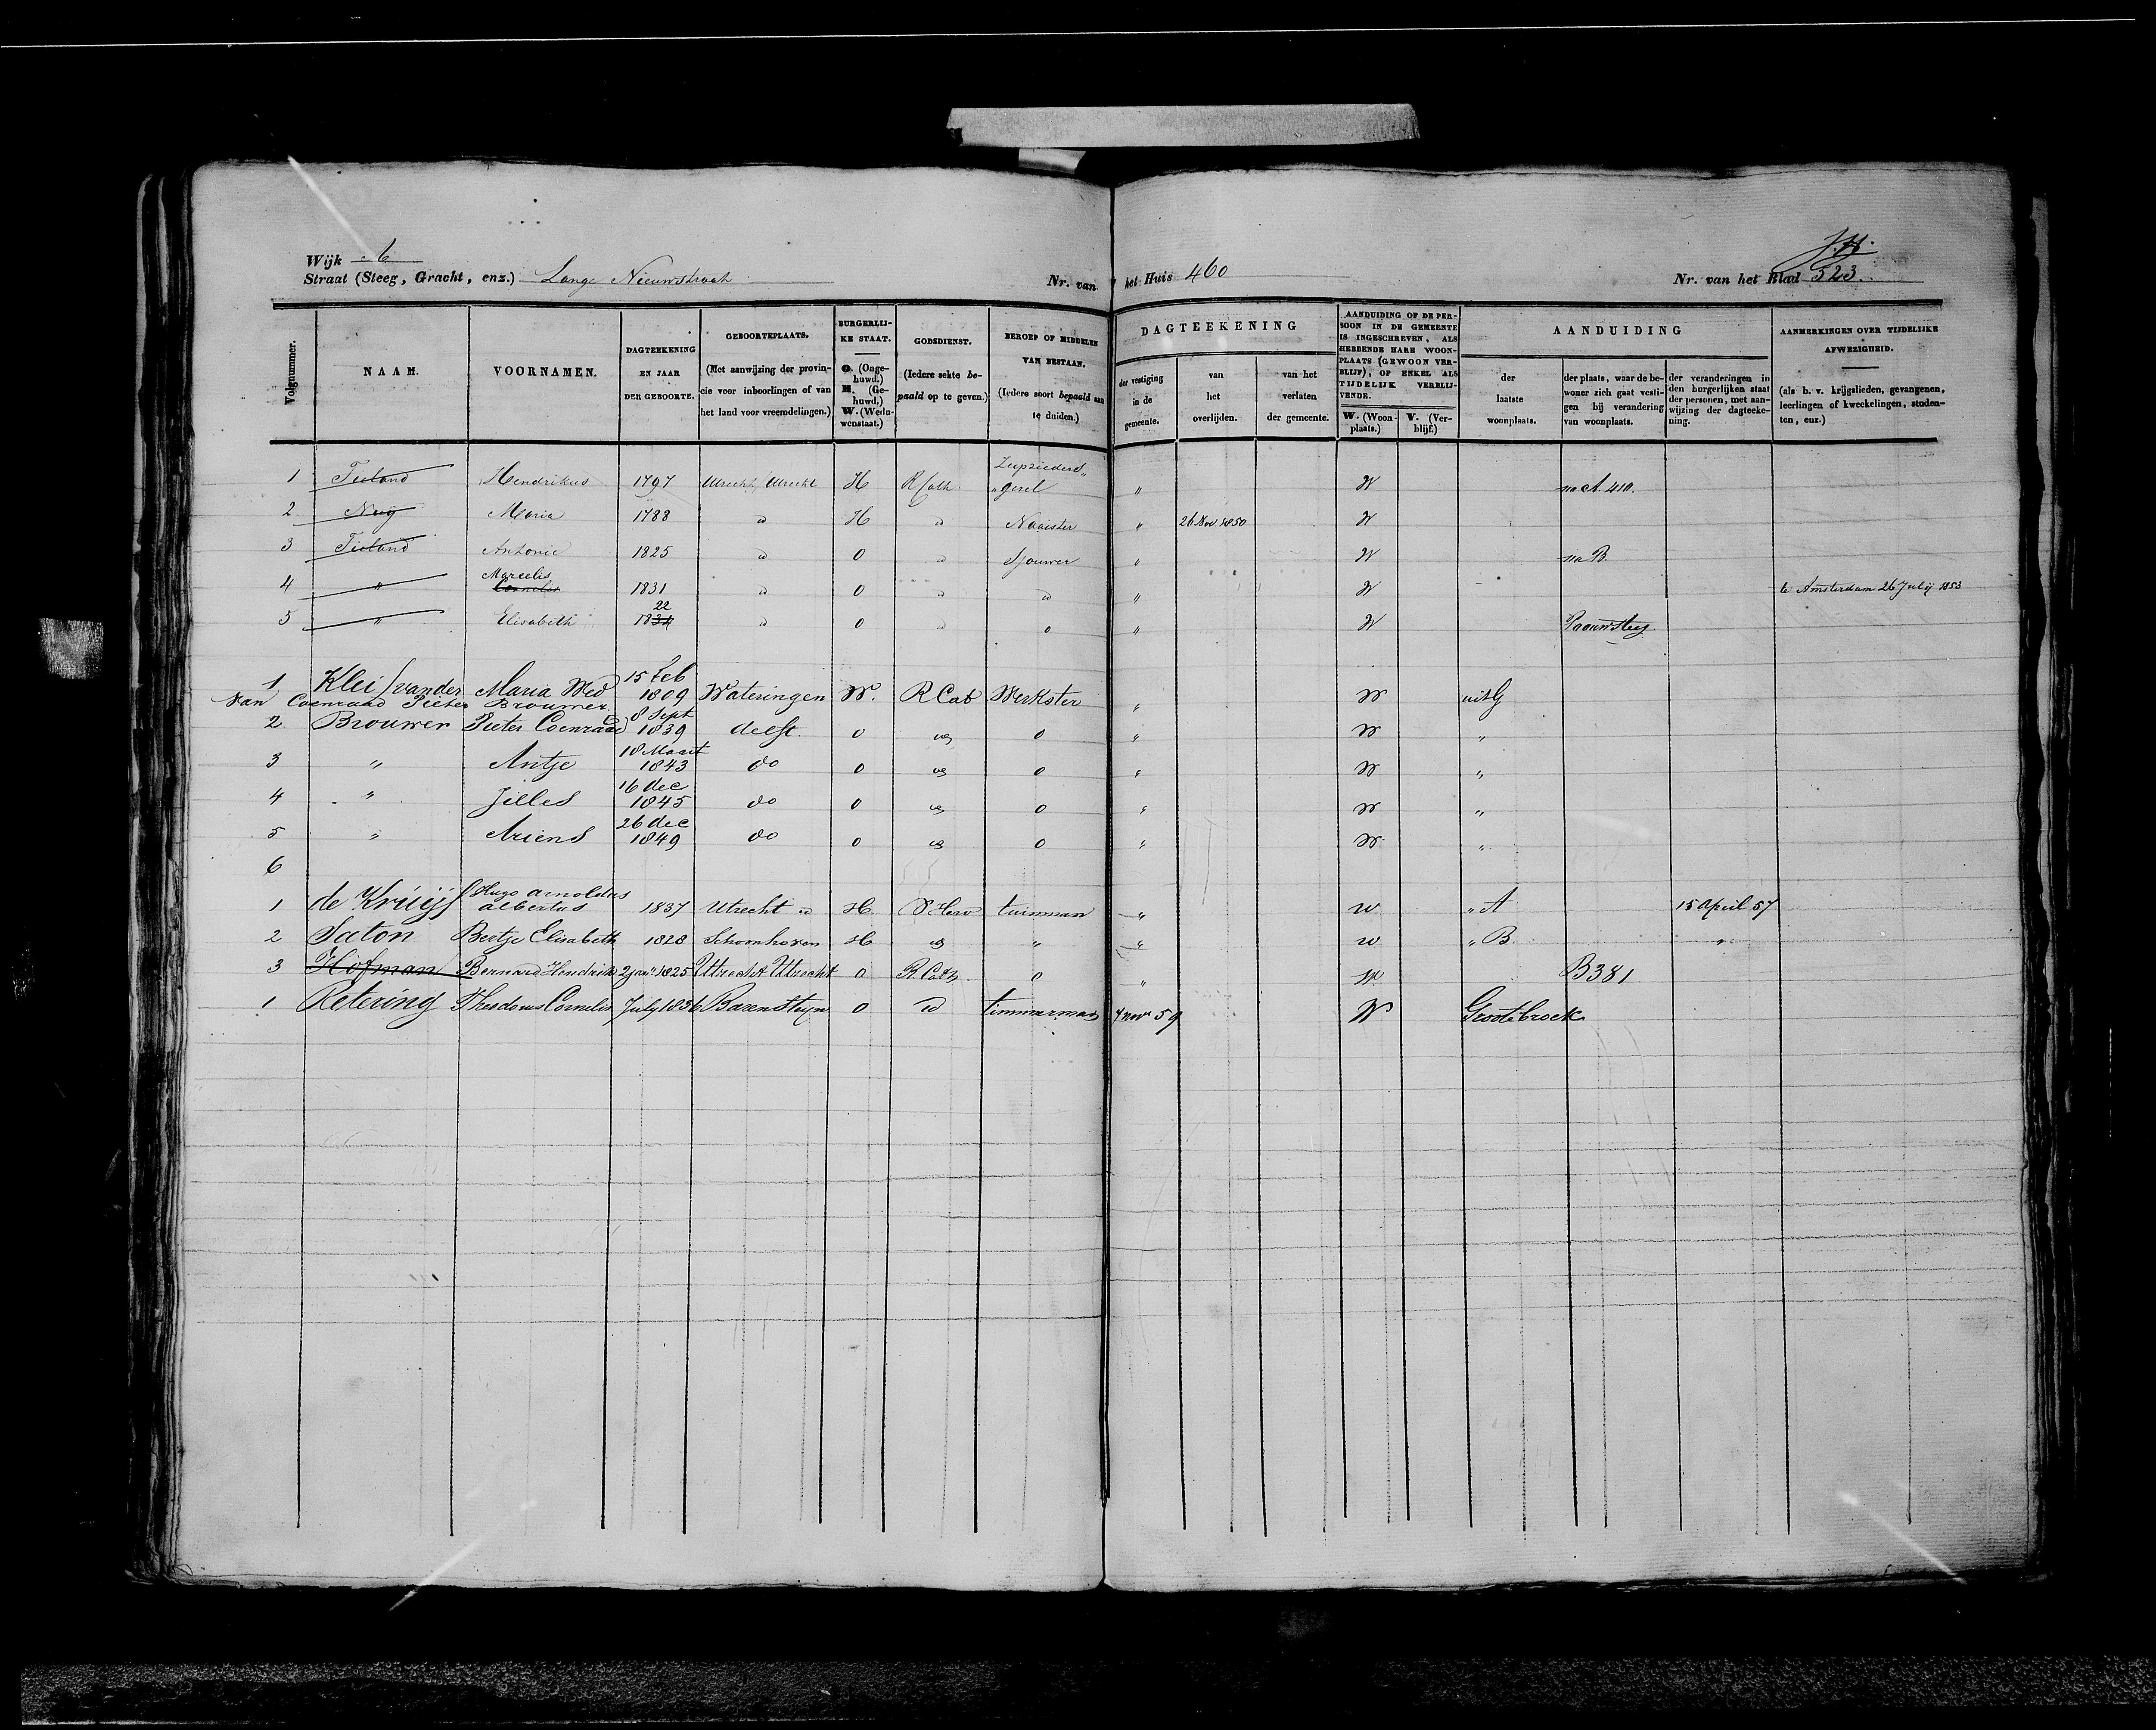 Wijk A
Straat (Steeg, Gracht, enz.) Lange Nieuwstraat Nr. van het Huis 460 Nr. van het Blad 523.
Volgnummer.
NAAM.
VOORNAMEN.
DAGTEEKENING EN JAAR DER GEBOORTE.
GEBOORTEPLAATS. (Met aanwijzing der provincie voor inboorlingen of van het land voor vreemdelingen.)
BURGERLIJKE STAAT. O. (Ongehuwd.) H. (Gehuwd.) W. (Weduwenstaat.)
GODSDIENST. (Iedere sekte bepaald op te geven.)
BEROEP OF MIDDELEN VAN BESTAAN. (Iedere soort bepaald aan te duiden.)
DAGTEEKENING
der vestiging in de gemeente.
van het overlijden.
van het verlaten der gemeente.
AANDUIDING OF DE PERSOON IN DE GEMEENTE IS INGESCHREVEN, ALS HEBBENDE HARE WOONPLAATS (GEWOON VERBLIJF), OF ENKEL ALS TIJDELIJK VERBLIJVENDE.
W. (Woonplaats.) V. (Verblijf.)
AANDUIDING
der laatste woonplaats.
der plaats, waar de bewoner zich gaat vestigen bij verandering van woonplaats.
der veranderingen in den burgerlijken staat der personen, met aanwijzing der dagteekening.
AANMERKINGEN OVER TIJDELIJKE AFWEZIGHEID. (als b. v. krijgslieden, gevangenen, leerlingen of kweekelingen, studenten, enz.)
1 Tieland Hendrikus 1797 Utrecht Utrecht H R Cath Zeepzieders gezel " W na A. 410.
2 Nuij Maria 1788 id H id Naaister " 26 Nov 1850 W
3 Tieland Antonie 1825 id O id Sjouwer " W na B.
4 " Marcelis Cornelis 1831 id O id id " W te Amsterdam 26 July 1853
5 " Elisabeth 1834 22 id O id o " W Paauwsteeg
1 Klei/van der Maria Wed 15 Feb 1809 Wateringen W. R Cat Werkster " W uit G
van Coenraad Pieter Brouwer
2 Brouwer Pieter Coenraad 8 Sept 1839 delft. O id o " W "
3 " Antje 18 Maart 1843 do O id o " W "
4 " Jilles 16 dec 1845 do O id o " W "
5 " Ariens 26 dec 1849 do O id o " W "
6
1 de Kruijf Hugo arnoldus albertus 1837 Utrecht id H N Herv tuinman " W " A 15 April 57
2 Saton Bertje Elisabeth 1828 Schoonhoven H id " " W " B. "
3 Hofman Bernard Hendrik 2 jan 1825 Utrecht Utrecht O R. Cath o " W B381
1 Retering Theodorus Cornelis July 1836 Barensteyn O id timmerman 4 nov 59 W Grootebroek